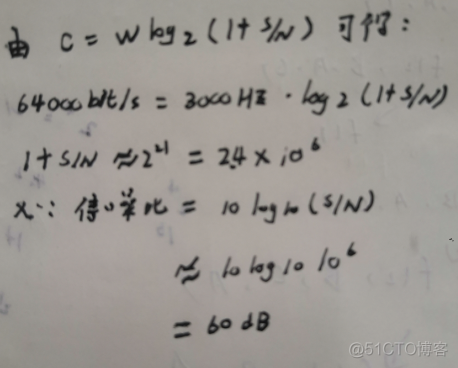 由 C = W log₂(1+S/N) 可得:
64000 bit/s = 3000 HZ · log2(1+S/N)
1+S/N ≈ 2²¹ = 2.4 × 10⁶
又∵ 信噪比 = 10 log10 (S/N)
≈ 10 log 10 10⁶
= 60 dB
@51CTO博客